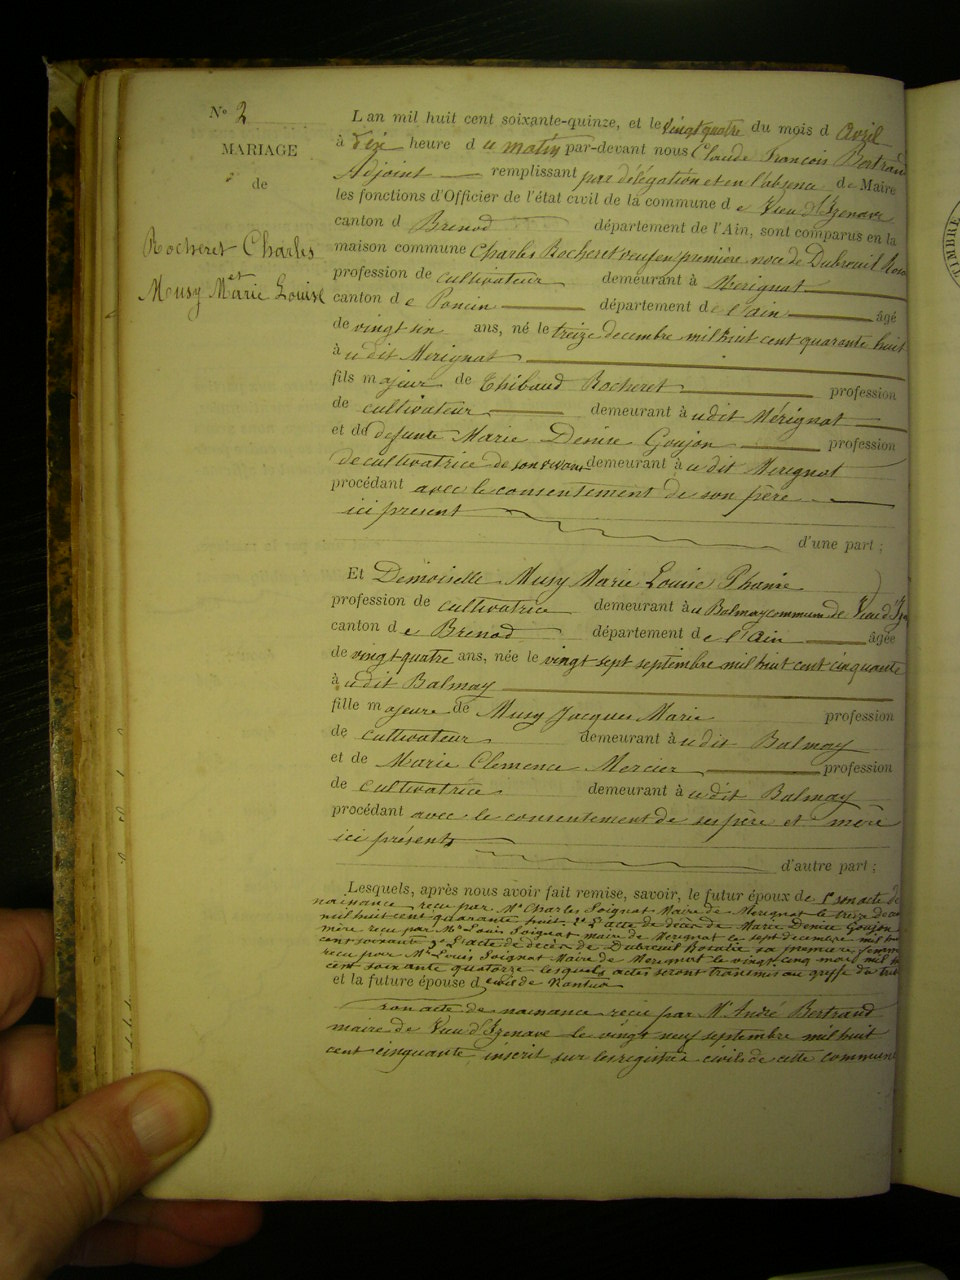 N° 2
MARIAGE
de
Rocheret Charles
et
Musy Marie Louise
L an mil huit cent soixante-quinze, et le vingt quatre du mois d Avril
à Dix heure d u matin par-devant nous Claude François Bertrand
Adjoint remplissant par délégation et en l'absence de Maire
les fonctions d'Officier de l'état civil de la commune d e Vieu d'Izenave
canton d Brenod département de l'Ain, sont comparus en la
maison commune Charles Rocheret veuf en première noce de Dubreuil
profession de cultivateur demeurant à Merignat
canton d e Poncin département d e l'ain âgé
de vingt six ans, né le treize decembre mil huit cent quarante huit
à udit Merignat
fils m ajeur de Thibaud Rocheret profession
de cultivateur demeurant à udit Mérignat
et de defunte Marie Denise Goujon profession
de cultivatrice de son vivant demeurant à udit Merignat
procédant avec le consentement de son père
ici présent
d'une part ;
Et Demoiselle Musy Marie Louise Phanie
profession de cultivatrice demeurant à u Balmay commune de Vieu d'Ize
canton d e Brenod département d e l'Ain âgée
de vingt quatre ans, née le vingt sept septembre mil huit cent cinquante
à udit Balmay
fille m ajeure de Musy Jacques Marie profession
de cultivateur demeurant à udit Balmay
et de Marie Clemence Mercier profession
de cultivatrice demeurant à udit Balmay
procédant avec le consentement de ses père et mère
ici présents
d'autre part ;
Lesquels, après nous avoir fait remise, savoir, le futur époux de 1° son acte de
naissance reçu par Mr Charles Soignat Maire de Merignat le treize dece
mil huit cent quarante huit. 2° L'acte de décès de Marie Denise Goujon
mère reçu par Mr Louis Soignat maire de Merignat le sept decembre mil hui
cent soixante 3° L'acte de décès de Dubreuil Rosalie sa première femme
reçu par Mr Louis Soignat Maire de Merignat le vingt cinq mars mil h
cent soixante quatorze lesquels actes seront transmis au greffe du trib
et la future épouse d civil de Nantua
son acte de naissance reçu par Mr André Bertrand
maire de Vieu d'Izenave le vingt neuf septembre mil huit
cent cinquante inscrit sur les registres civils de cette commune
TIMBRE